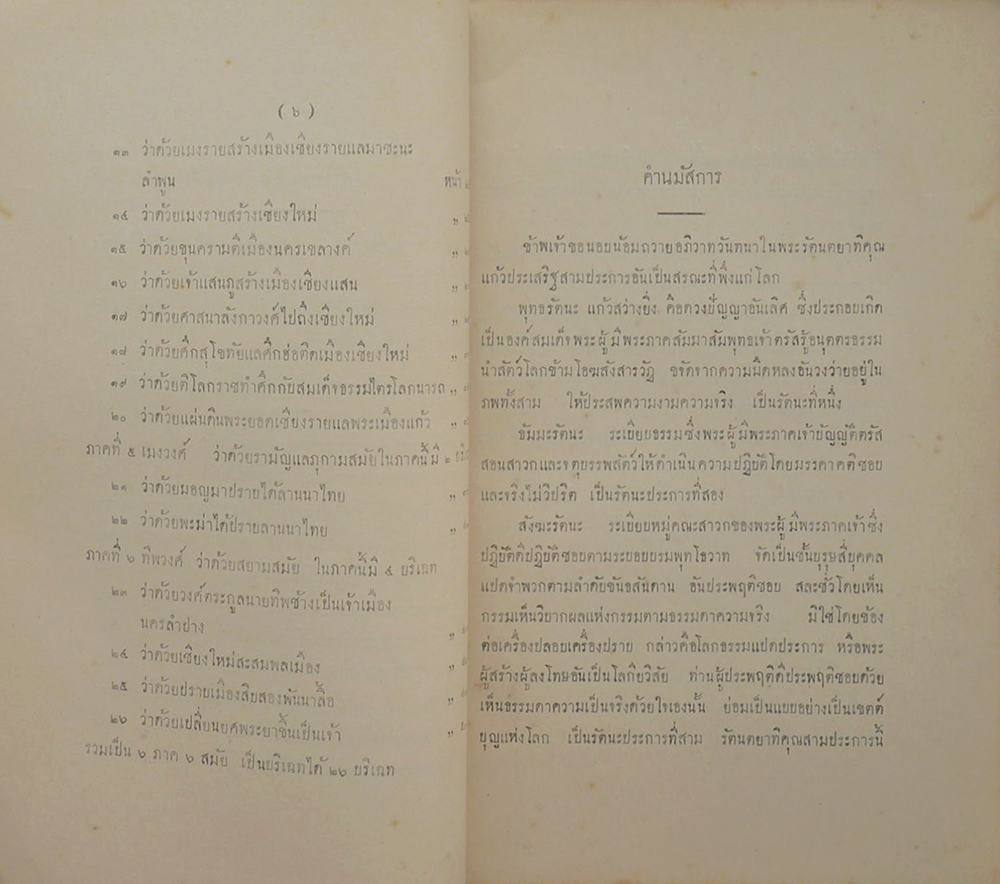 ( ๖ )
๑๓ ว่าด้วยเมงรายสร้างเมืองเชียงรายแลมาชะนะ
ลำพูน หน้า
๑๔ ว่าด้วยเมงรายสร้างเชียงใหม่ „
๑๕ ว่าด้วยขุนครามตีเมืองนครเขลางค์ „
๑๖ ว่าด้วยเจ้าแสนภูสร้างเมืองเชียงแสน „
๑๗ ว่าด้วยศาสนาลังกาวงศ์ไปถึงเชียงใหม่ „
๑๘ ว่าด้วยศึกสุโขทัยแลศึกฮ่อติดเมืองเชียงใหม่ „
๑๙ ว่าด้วยติโลกราชทำศึกกับสมเด็จธรรมไตรโลกนารถ „
๒๐ ว่าด้วยแผ่นดินพระยอดเชียงรายแลพระเมืองแก้ว „
ภาคที่ ๕ เมงวงศ์ ว่าด้วยรามัญแลภุกามสมัยในภาคนี้มี ๒
๒๑ ว่าด้วยมอญมาปราบได้ลานนาไทย „
๒๒ ว่าด้วยพะม่าได้ปราบลานนาไทย „
ภาคที่ ๖ ทิพวงศ์ ว่าด้วยสยามสมัย ในภาคนี้มี ๔ บริเฉท
๒๓ ว่าด้วยวงศ์ตระกูลนายทิพช้างเป็นเจ้าเมือง
นครลำปาง „
๒๔ ว่าด้วยเชียงใหม่สะสมพลเมือง „
๒๕ ว่าด้วยปราบเมืองสิบสองพันนาลื้อ „
๒๖ ว่าด้วยเปลี่ยนยศพระยาขึ้นเป็นเจ้า „
รวมเป็น ๖ ภาค ๖ สมัย เป็นบริเฉทได้ ๒๖ บริเฉท
คำนมัสการ
ข้าพเจ้าขอนอบน้อมถวายอภิวาทวันทนาในพระรัตนตยาทิคุณ
แก้วประเสริฐสามประการอันเป็นสรณะที่พึ่งแก่โลก
พุทธรัตนะ แก้วสว่างยิ่ง คือดวงปัญญาอันเลิศ ซึ่งประกอบเกิด
เป็นองค์สมเด็จพระผู้มีพระภาคสัมมาสัมพุทธเจ้าตรัสรู้อนุตตรธรรม
นำสัตว์โลกข้ามโอฆสังสารวัฏ ขจัดจากความมืดหลงอันวงว่ายอยู่ใน
ภพทั้งสาม ให้ประสพความงามความจริง เป็นรัตนะที่หนึ่ง
ธัมมะรัตนะ ระเบียบธรรมซึ่งพระผู้มีพระภาคเจ้าบัญญัติตรัส
สอนสาวกและจตุบรรพสัตว์ให้ดำเนินความปฏิบัติโดยมรรคาคติชอบ
และจริงไม่วิปริต เป็นรัตนะประการที่สอง
สังฆะรัตนะ ระเบียบหมู่คณะสาวกของพระผู้มีพระภาคเจ้าซึ่ง
ปฏิบัติดีปฏิบัติชอบตามระบอบบรมพุทโธวาท จัดเป็นชั้นบุรุษสี่บุคคล
แปดจำพวกตามลำดับขันธสันดาน อันประพฤติชอบ สละชั่วโดยเห็น
กรรมเห็นวิบากผลแห่งกรรมตามธรรมดาความจริง มิใช่โดยข้อง
ต่อเครื่องปลอบเครื่องปราบ กล่าวคือโลกธรรมแปดประการ หรือพระ
ผู้สร้างผู้ลงโทษอันเป็นโลกียวิสัย ท่านผู้ประพฤติดีประพฤติชอบด้วย
เห็นธรรมดาความเป็นจริงด้วยใจเองนั้น ย่อมเป็นแบบอย่างเป็นเขตต์
บุญแห่งโลก เป็นรัตนะประการที่สาม รัตนตยาทิคุณสามประการนี้